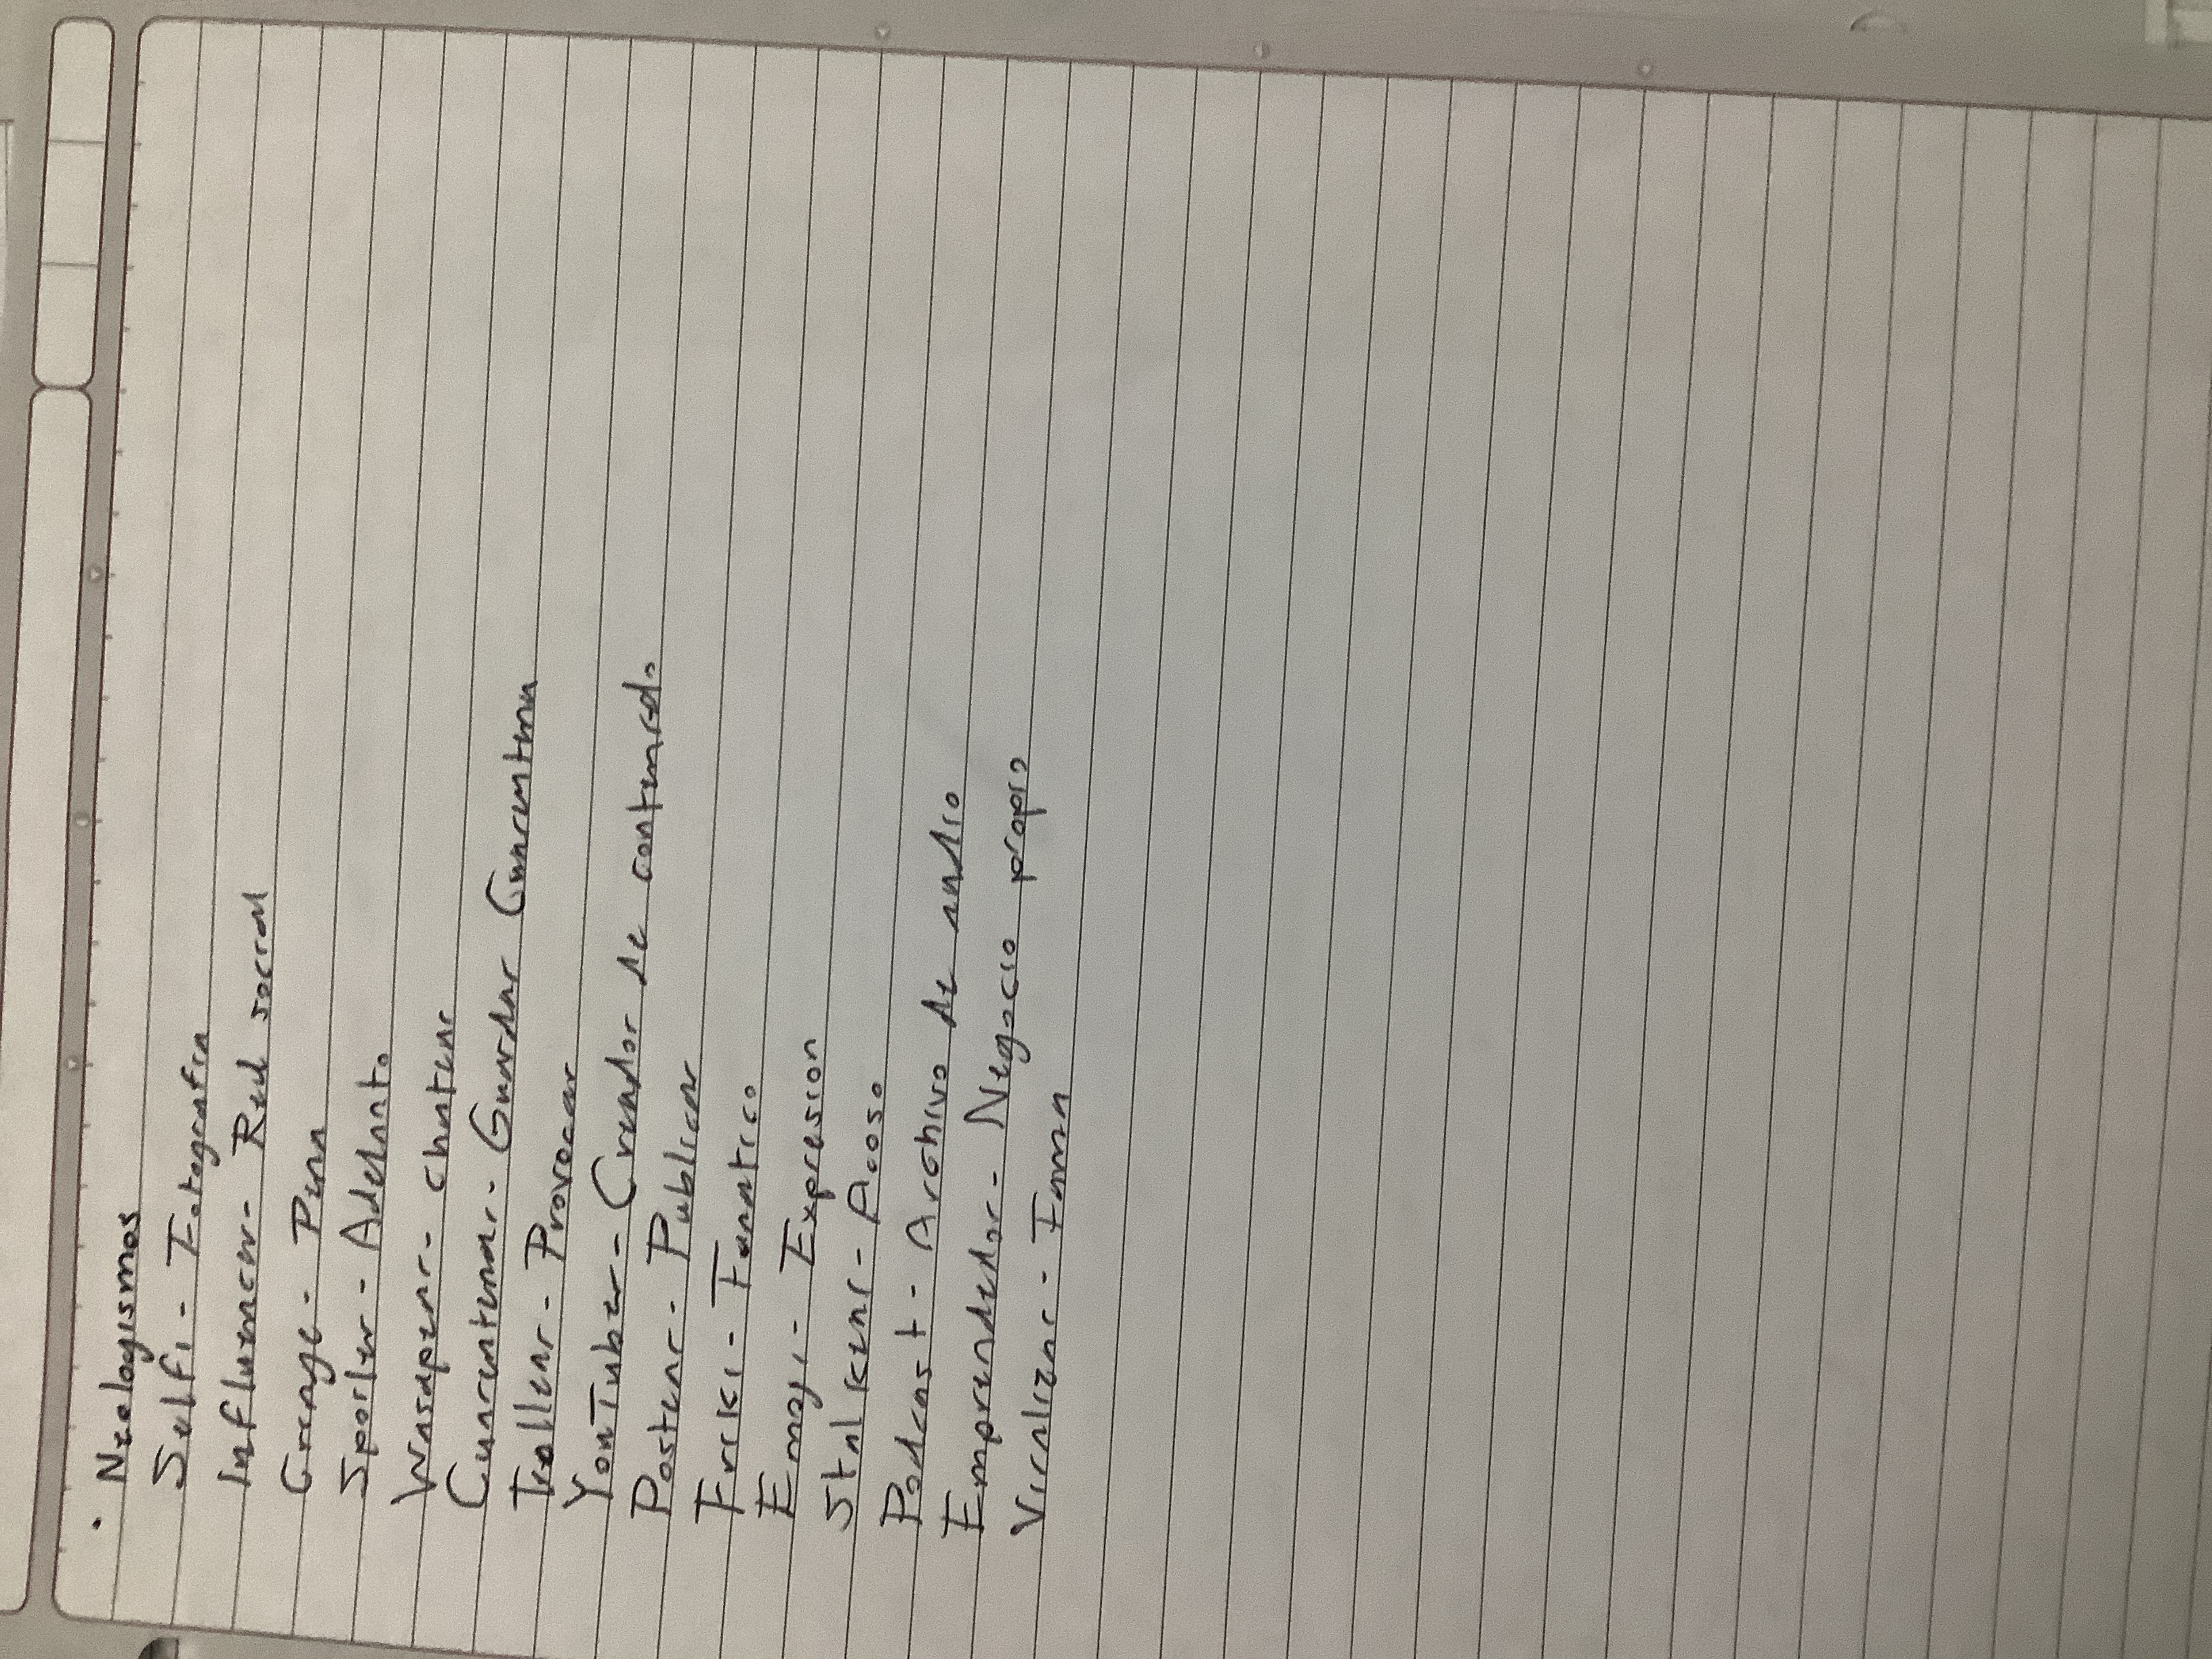 • Neologismos
Selfi - Fotografia
Influencer - Red social
Cringe - Pena
Spoiler - Adelanto
Wasapear - chatear
Cuarentenar - Guardar Cuarentena
Trollear - Provocar
YouTuber - Creador de contenido
Postear - Publicar
Friki - Fanatico
Emoji - Expresion
Stalkear - Acoso
Podcast - Archivo de audio
Emprendedor - Negocio propio
Viralizar - Fama